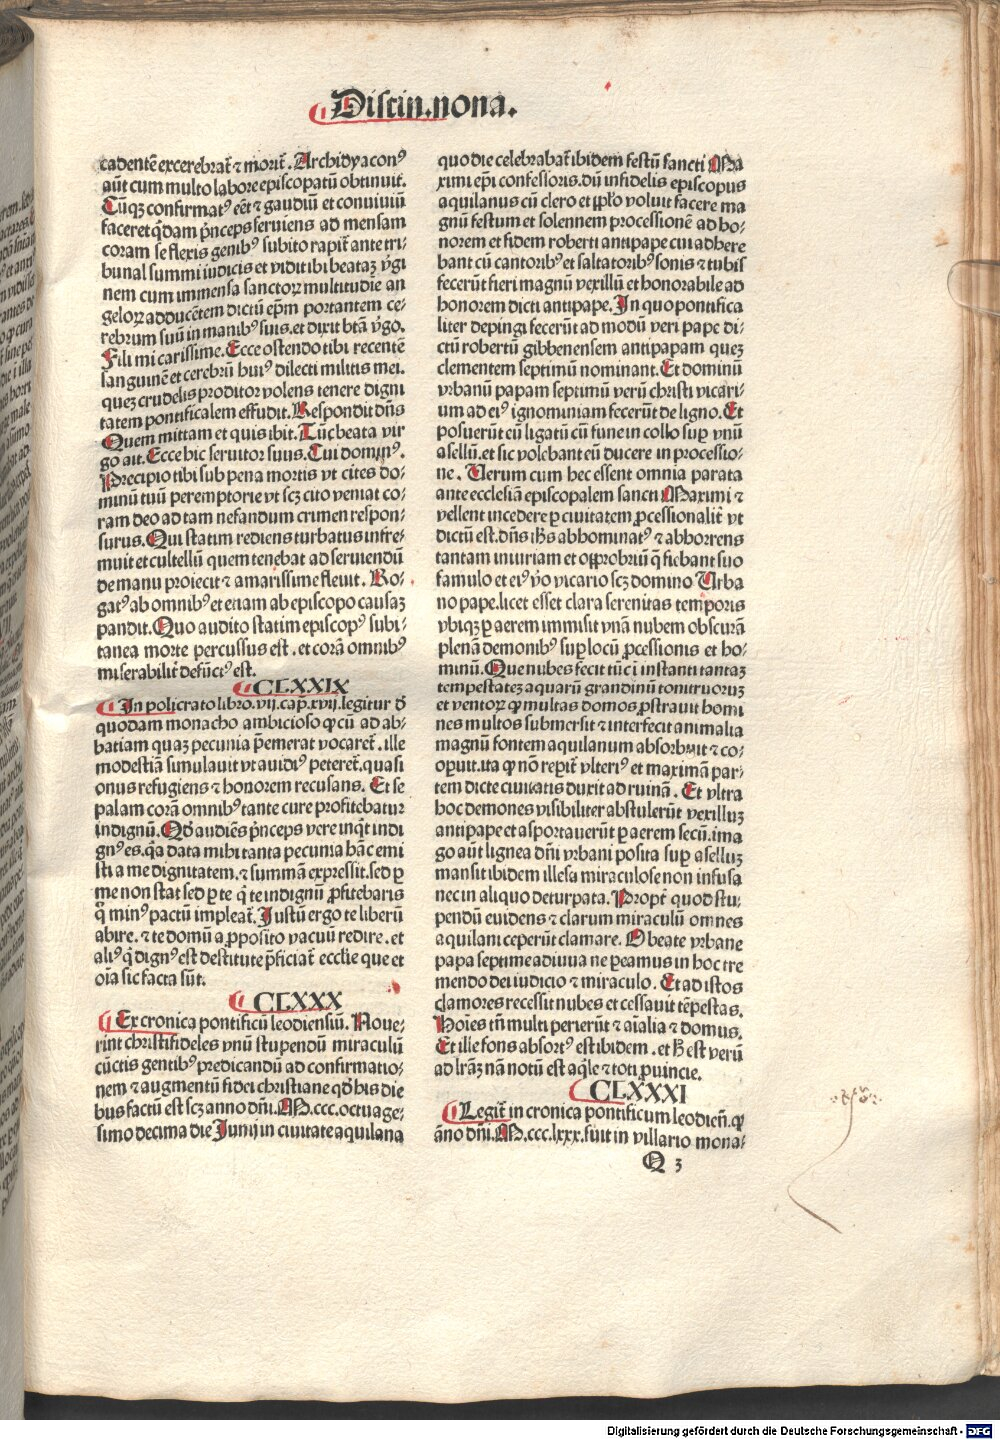 Distin.nona.
cadentē excerebrat᷑ ⁊ morit᷑. Archidyaconꝰ
aūt cum multo labore episcopatū obtinuit.
Tūqꝫ confirmatꝰ eēt ⁊ gaudiū et conuiuiū
faceret q̇dam p̄nceps seruiens ad mensam
coram se flexis genibꝰ subito rapit᷑ ante tri⸗
bunal summi iudicis et vidit ibi beataꝫ v̇gi
nem cum immensa sanctoꝝ multitudīe an
geloꝝ adducētem dictū ep̄m portantem ce⸗
rebrum suū in manibꝰ suis. et dixit btā v̇go.
Fili mi carissime. Ecce ostendo tibi recentē
sanguinē et cerebrū huiꝰ dilecti militis mei.
queꝫ crudelis proditor volens tenere digni
tatem pontificalem effudit. Respondit dn̄s
Quem mittam et quis ibit. Tūc beata vir
go ait. Ecce hic seruitor suus. Cui domīnꝰ.
Precipio tibi sub pena mortis vt cites do⸗
minū tuū peremptorie vt scꝫ cito veniat co⸗
ram deo ad tam nefandum crimen respon⸗
surus. Qui statim rediens turbatus infre⸗
muit et cultellū quem tenebat ad seruiendū
de manu proiecit ⁊ amarissime fleuit. Ro⸗
gatꝰ ab omnibꝰ et etiam ab episcopo causaꝫ
pandit. Quo audito statim episcopꝰ subi⸗
tanea morte percussus est. et corā omnibꝰ
miserabilit᷑ defūctꝰ est.
CLXXIX
In policrato libro.vij.cap̄.xvij.legitur ď
quodam monacho ambicioso ꝙ cū ad ab⸗
batiam quaꝫ pecunia p̄emerat vocaret᷑. ille
modestiā simulauit vt auidiꝰ peteret᷑. quasi
onus refugiens ⁊ honorem recusans. Et se
palam corā omnibꝰ tante cure profitebatur
indignū. Qď audiēs p̄nceps vere inq̇t indi
gnꝰ es. q̇a data mihi tanta pecunia hāc emi
sti a me dignitatem. ⁊ summā expressit. sed ꝑ
me non stat sed ꝑ te q̇ te indignū ꝓfitebaris
q̄ minꝰ pactū impleat᷑. Justū ergo te liberū
abire. ⁊ te domū a ꝓposito vacuū redire. et
aliꝰ q̇ dignꝰ est destitute p̄ficiat᷑ ecclie que et
oīa sic facta sūt.
CLXXX
Ex cronica pontificū leodiensiū. Noue⸗
rint christifideles vnū stupendū miraculū
cūctis gentibꝰ predicandū ad confirmatio⸗
nem ⁊ augmentū fidei christiane qď his die
bus factū est scꝫ anno dn̄i. M.ccc.octuage⸗
simo decima die Junij in ciuitate aquilana
quo die celebrabat᷑ ibidem festū sancti Ma
ximi ep̄i confessoris. dū infidelis episcopus
aquilanus cū clero et ppl̄o voluit facere ma
gnū festum et solennem processionē ad ho⸗
norem et fidem roberti antipape cui adhere
bant cū cantoribꝰ et saltatoribꝰ sonis ⁊ tubis
fecerūt fieri magnū vexillū et honorabile ad
honorem dicti antipape. In quo pontifica
liter depingi fecerūt ad modū veri pape di⸗
ctū robertū gibbenensem antipapam queꝫ
clementem septimū nominant. Et dominū
vrbanū papam septimū verū christi vicari⸗
um ad eiꝰ ignominiam fecerūt de ligno. Et
posuerūt cū ligatū cū fune in collo suꝑ vnū
asellū. et sic volebant eū ducere in processio⸗
ne. Verum cum hec essent omnia parata
ante ecclesiā episcopalem sancti Maximi ⁊
vellent incedere ꝑ ciuitatem ꝓcessionalit᷑ vt
dictū est. dn̄s ihs̄ abbominatꝰ ⁊ abhorrens
tantam iniuriam et opꝓbriū q̄ fiebant suo
famulo et eiꝰ v̇o vicario scꝫ domino Urba
no pape. licet esset clara serenitas temporis
vbiqꝫ ꝑ aerem immisit vnā nubem obscurā
plenā demonibꝰ suꝑ locū ꝓcessionis et ho⸗
minū. Que nubes fecit tūc ī instanti tantaꝫ
tempestateꝫ aquarū grandinū tonitruoruꝫ
et ventoꝝ ꝙ multas domos ꝓstrauit homi
nes multos submersit ⁊ interfecit animalia
magnū fontem aquilanum absorbuit ⁊ co⸗
oꝑuit. ita ꝙ non reꝑit᷑ vlteriꝰ et maximā par⸗
tem dicte ciuitatis duxit ad ruinā. Et vltra
hoc demones visibiliter abstulerūt vexilluꝫ
antipape et asportauerūt ꝑ aerem secū. ima
go aūt lignea dn̄i vrbani posita suꝑ aselluꝫ
mansit ibidem illesa miraculose non infusa
nec in aliquo deturpata. Propt᷑ quod stu⸗
pendū euidens ⁊ clarum miraculū omnes
aquilani ceperūt clamare. O beate vrbane
papa septime adiuua ne ꝑeamus in hoc tre
mendo dei iudicio ⁊ miraculo. Et ad istos
clamores recessit nubes et cessauit tēpestas.
Hoīes tn̄ multi perierūt ⁊ aīalia ⁊ domus.
Et ille fons absortꝰ est ibidem. et h̄ est verū
ad lr̄aꝫ nā notū est aq̇le ⁊ toti ꝓuincie.
CLXXXI
Legit᷑ in cronica pontificum leodien̄. ꝙ
āno dn̄i. M.ccc.lxxx. fuit in villario mona⸗
Q 3
Digitalisierung gefördert durch die Deutsche Forschungsgemeinschaft - DFG